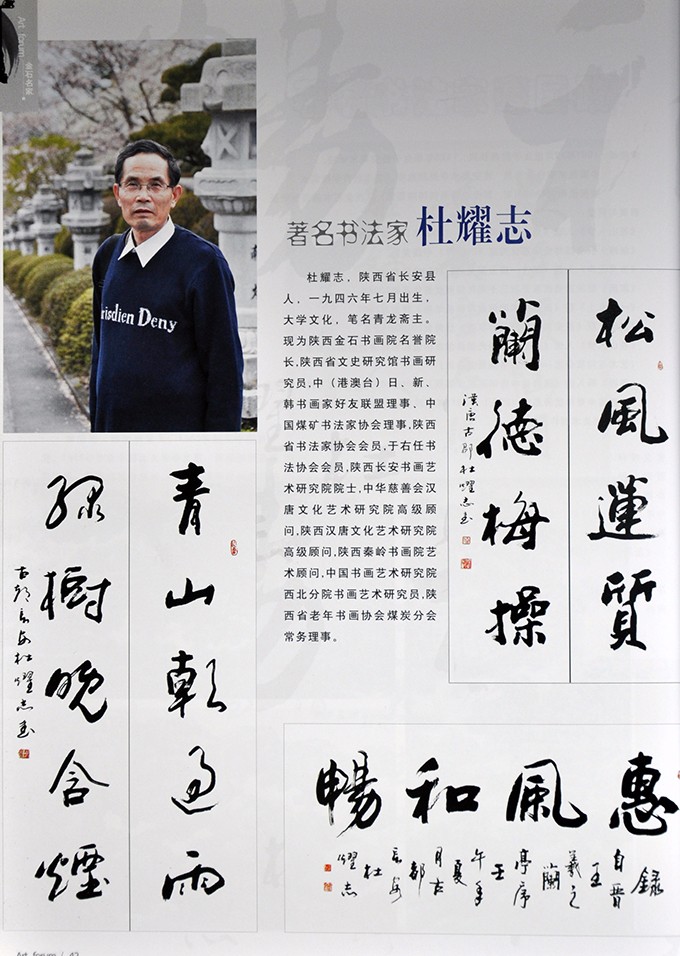 Art forum 金石名家
risdien Deny
著名书法家 杜耀志
杜耀志，陕西省长安县
人，一九四六年七月出生，
大学文化，笔名青龙斋主。
现为陕西金石书画院名誉院
长,陕西省文史研究馆书画研
究员,中（港澳台）日、新、
韩书画家好友联盟理事、中
国煤矿书法家协会理事,陕西
省书法家协会会员,于右任书
法协会会员,陕西长安书画艺
术研究院院士,中华慈善会汉
唐文化艺术研究院高级顾
问,陕西汉唐文化艺术研究院
高级顾问,陕西秦岭书画院艺
术顾问,中国书画艺术研究院
西北分院书画艺术研究员,陕
西省老年书画协会煤炭分会
常务理事。
松風蓮質
蘭德梅操
漢唐古都杜燿志书
青山朝過雨
綠樹晚含煙
古都長安杜燿志書
惠風和暢
錄
自晉
王
羲之
蘭
亭序
壬
午年
夏
月古
都
長安
杜
燿志
Art forum / 42